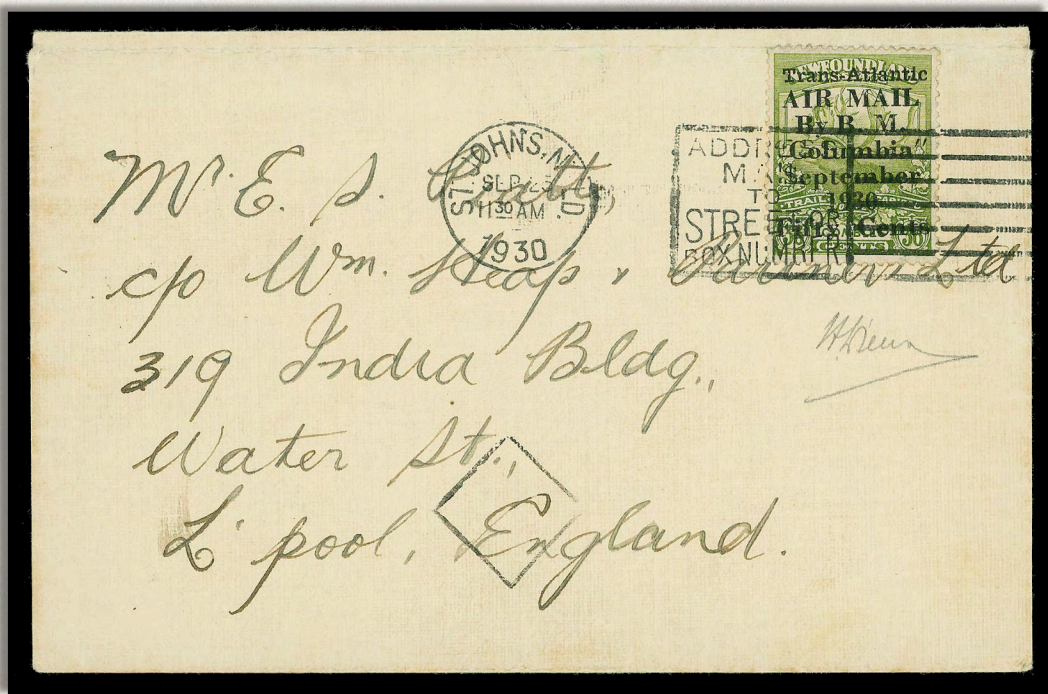 NEWFOUNDLAND
Trans-Atlantic
AIR MAIL
By B. M.
"Columbia"
September
1930
Fifty Cents
ST. JOHN'S, N.F.L.D.
SEP 25
11 30 AM
1930
ADDRESS
MAIL
TO
STREET OR
BOX NUMBER
Mr. E. S.
c/o Wm. Heap & Partners Ltd
319 India Bldg.,
Water St.,
L'pool, England.